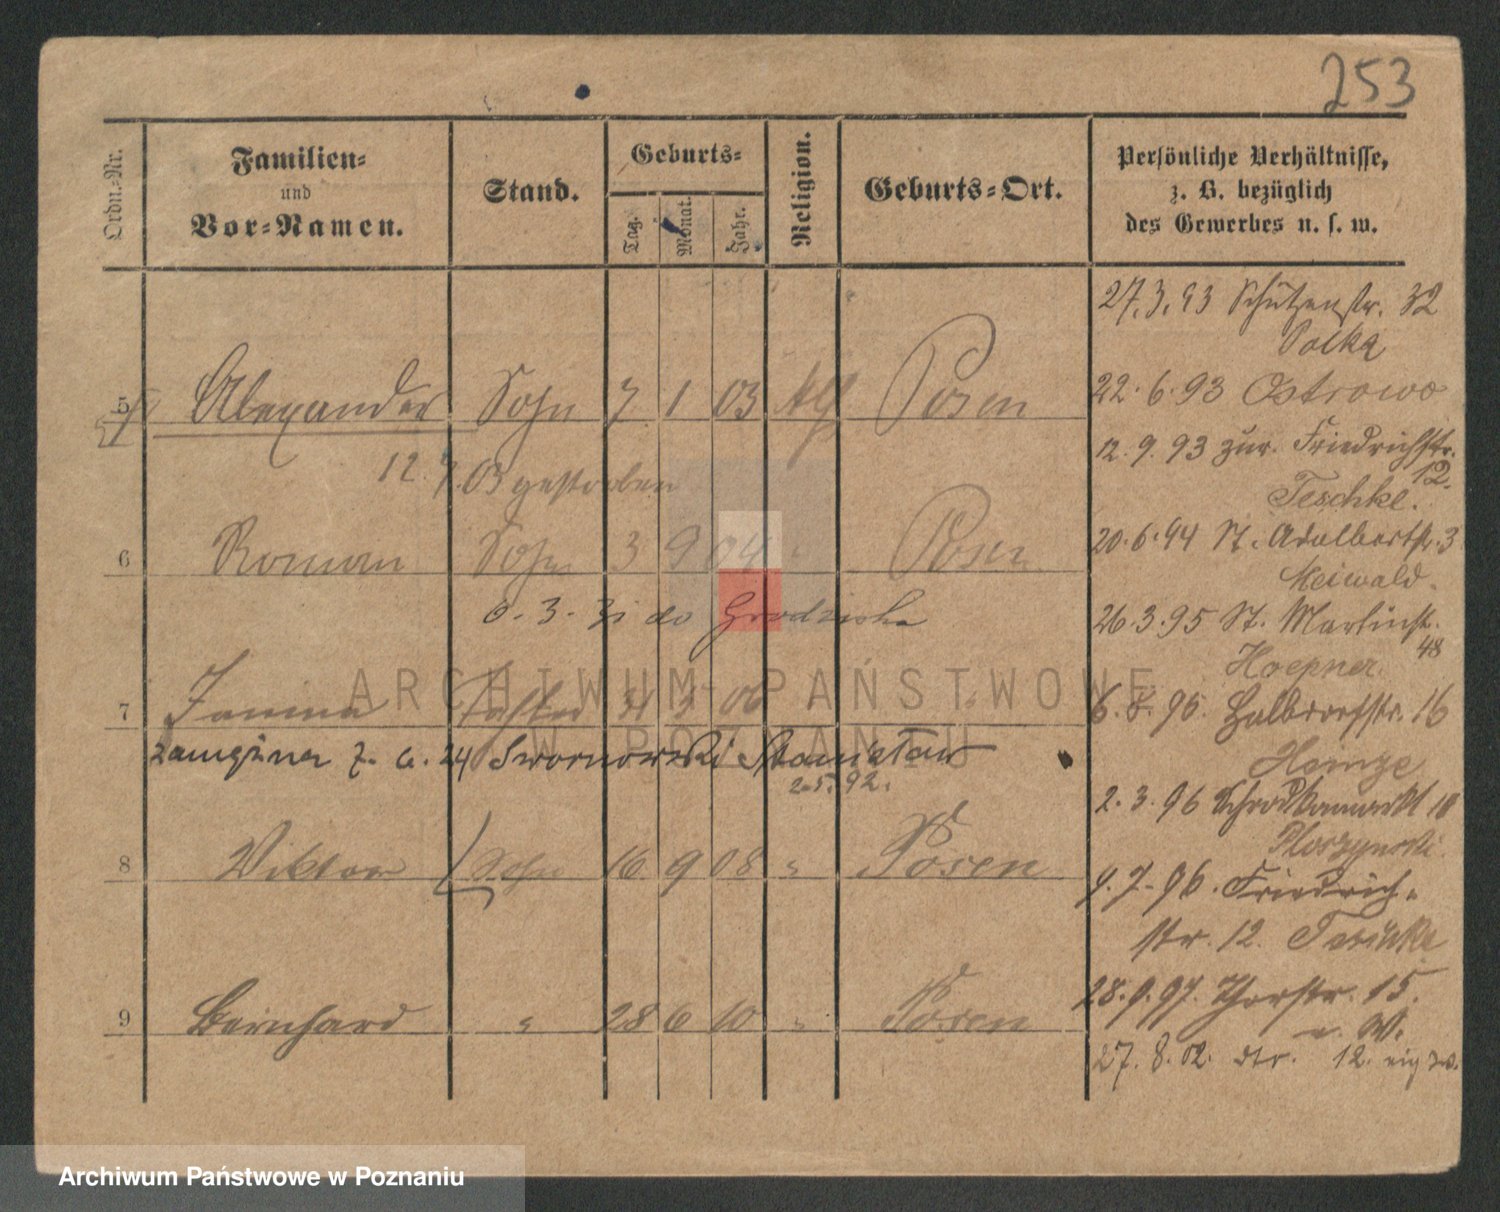 253
Ordn.-Nr.
Familien-
und
Vor-Namen.
Stand.
Geburts-
Tag.
Monat.
Jahr.
Religion.
Geburts-Ort.
Persönliche Verhältnisse,
z. B. bezüglich
des Gewerbes u. s. w.
5 Alexander Sohn 7 1 03 Posen
12. 9. 03 gestorben
6 Roman Sohn 3 9 04 " Posen
6. 3. 31 do Grodziska
7 Janina Tochter 06
zamężna 7. 6. 24 Swornowski Stanisław
2.5.92.
8 Viktor Sohn 16 9 08 " Posen
9 Bernhard " 28 6 10 " Posen
27.3.93 Schützenstr. 32
Polka
22.6.93 Ostrowo
12.9.93 zur. Friedrichstr.
12.
Teschke.
20.6.94 St. Adalbertstr. 3
Meiwald.
26.3.95 St. Martinstr.
48
Hoepner.
6.8.95. Halbdorfstr. 16
Heinze
2.3.96 Schrodkamarkt 10
9.7.96. Friedrich-
str. 12.
28.9.97. Thorstr. 15.
u. W.
27.8.02. str. 12.
ARCHIWUM PAŃSTWOWE
W POZNANIU
Archiwum Państwowe w Poznaniu